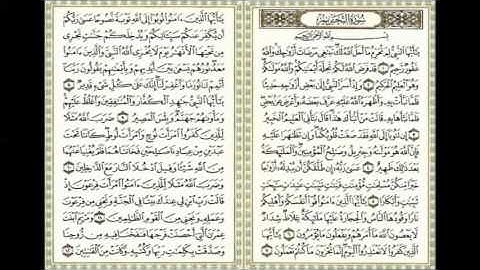 سورة التحريم
بسم الله الرحمن الرحيم
يَٰٓأَيُّهَا النَّبِيُّ لِمَ تُحَرِّمُ مَآ أَحَلَّ اللَّهُ لَكَ تَبْتَغِي مَرْضَاتَ أَزْوَٰجِكَ وَاللَّهُ
غَفُورٌ رَّحِيمٌ ١ قَدْ فَرَضَ اللَّهُ لَكُمْ تَحِلَّةَ أَيْمَٰنِكُمْ وَاللَّهُ مَوْلَىٰكُمْ
وَهُوَ الْعَلِيمُ الْحَكِيمُ ٢ وَإِذْ أَسَرَّ النَّبِيُّ إِلَىٰ بَعْضِ أَزْوَٰجِهِ حَدِيثًا
فَلَمَّا نَبَّأَتْ بِهِ وَأَظْهَرَهُ اللَّهُ عَلَيْهِ عَرَّفَ بَعْضَهُ وَأَعْرَضَ عَنۢ بَعْضٍ
فَلَمَّا نَبَّأَهَا بِهِ قَالَتْ مَنْ أَنۢبَأَكَ هَٰذَا قَالَ نَبَّأَنِيَ الْعَلِيمُ الْخَبِيرُ
٣ إِن تَتُوبَآ إِلَى اللَّهِ فَقَدْ صَغَتْ قُلُوبُكُمَا وَإِن تَظَٰهَرَا عَلَيْهِ
فَإِنَّ اللَّهَ هُوَ مَوْلَىٰهُ وَجِبْرِيلُ وَصَٰلِحُ الْمُؤْمِنِينَ وَالْمَلَٰٓئِكَةُ
بَعْدَ ذَٰلِكَ ظَهِيرٌ ٤ عَسَىٰ رَبُّهُ إِن طَلَّقَكُنَّ أَن يُبْدِلَهُ أَزْوَٰجًا
خَيْرًا مِّنكُنَّ مُسْلِمَٰتٍ مُّؤْمِنَٰتٍ قَٰنِتَٰتٍ تَٰٓئِبَٰتٍ عَٰبِدَٰتٍ سَٰٓئِحَٰتٍ
ثَيِّبَٰتٍ وَأَبْكَارًا ٥ يَٰٓأَيُّهَا الَّذِينَ ءَامَنُوا قُوٓا أَنفُسَكُمْ وَأَهْلِيكُمْ
نَارًا وَقُودُهَا النَّاسُ وَالْحِجَارَةُ عَلَيْهَا مَلَٰٓئِكَةٌ غِلَاظٌ شِدَادٌ لَّا
يَعْصُونَ اللَّهَ مَآ أَمَرَهُمْ وَيَفْعَلُونَ مَا يُؤْمَرُونَ ٦ يَٰٓأَيُّهَا
الَّذِينَ كَفَرُوا لَا تَعْتَذِرُوا الْيَوْمَ إِنَّمَا تُجْزَوْنَ مَا كُنتُمْ تَعْمَلُونَ ٧
يَٰٓأَيُّهَا الَّذِينَ ءَامَنُوا تُوبُوٓا إِلَى اللَّهِ تَوْبَةً نَّصُوحًا عَسَىٰ رَبُّكُمْ
أَن يُكَفِّرَ عَنكُمْ سَيِّـَٔاتِكُمْ وَيُدْخِلَكُمْ جَنَّٰتٍ تَجْرِي
مِن تَحْتِهَا الْأَنْهَٰرُ يَوْمَ لَا يُخْزِي اللَّهُ النَّبِيَّ وَالَّذِينَ ءَامَنُوا
مَعَهُ نُورُهُمْ يَسْعَىٰ بَيْنَ أَيْدِيهِمْ وَبِأَيْمَٰنِهِمْ يَقُولُونَ رَبَّنَآ
أَتْمِمْ لَنَا نُورَنَا وَاغْفِرْ لَنَآ إِنَّكَ عَلَىٰ كُلِّ شَيْءٍ قَدِيرٌ ٨
يَٰٓأَيُّهَا النَّبِيُّ جَٰهِدِ الْكُفَّارَ وَالْمُنَٰفِقِينَ وَاغْلُظْ عَلَيْهِمْ
وَمَأْوَىٰهُمْ جَهَنَّمُ وَبِئْسَ الْمَصِيرُ ٩ ضَرَبَ اللَّهُ مَثَلًا
لِّلَّذِينَ كَفَرُوا امْرَأَتَ نُوحٍ وَامْرَأَتَ لُوطٍ كَانَتَا تَحْتَ
عَبْدَيْنِ مِنْ عِبَادِنَا صَٰلِحَيْنِ فَخَانَتَاهُمَا فَلَمْ يُغْنِيَا عَنْهُمَا
مِنَ اللَّهِ شَيْـًٔا وَقِيلَ ادْخُلَا النَّارَ مَعَ الدَّٰخِلِينَ ١٠
وَضَرَبَ اللَّهُ مَثَلًا لِّلَّذِينَ ءَامَنُوا امْرَأَتَ فِرْعَوْنَ إِذْ
قَالَتْ رَبِّ ابْنِ لِي عِندَكَ بَيْتًا فِي الْجَنَّةِ وَنَجِّنِي مِن فِرْعَوْنَ
وَعَمَلِهِ وَنَجِّنِي مِنَ الْقَوْمِ الظَّٰلِمِينَ ١١ وَمَرْيَمَ ابْنَتَ
عِمْرَٰنَ الَّتِيٓ أَحْصَنَتْ فَرْجَهَا فَنَفَخْنَا فِيهِ مِن رُّوحِنَا
وَصَدَّقَتْ بِكَلِمَٰتِ رَبِّهَا وَكُتُبِهِ وَكَانَتْ مِنَ الْقَٰنِتِينَ ١٢